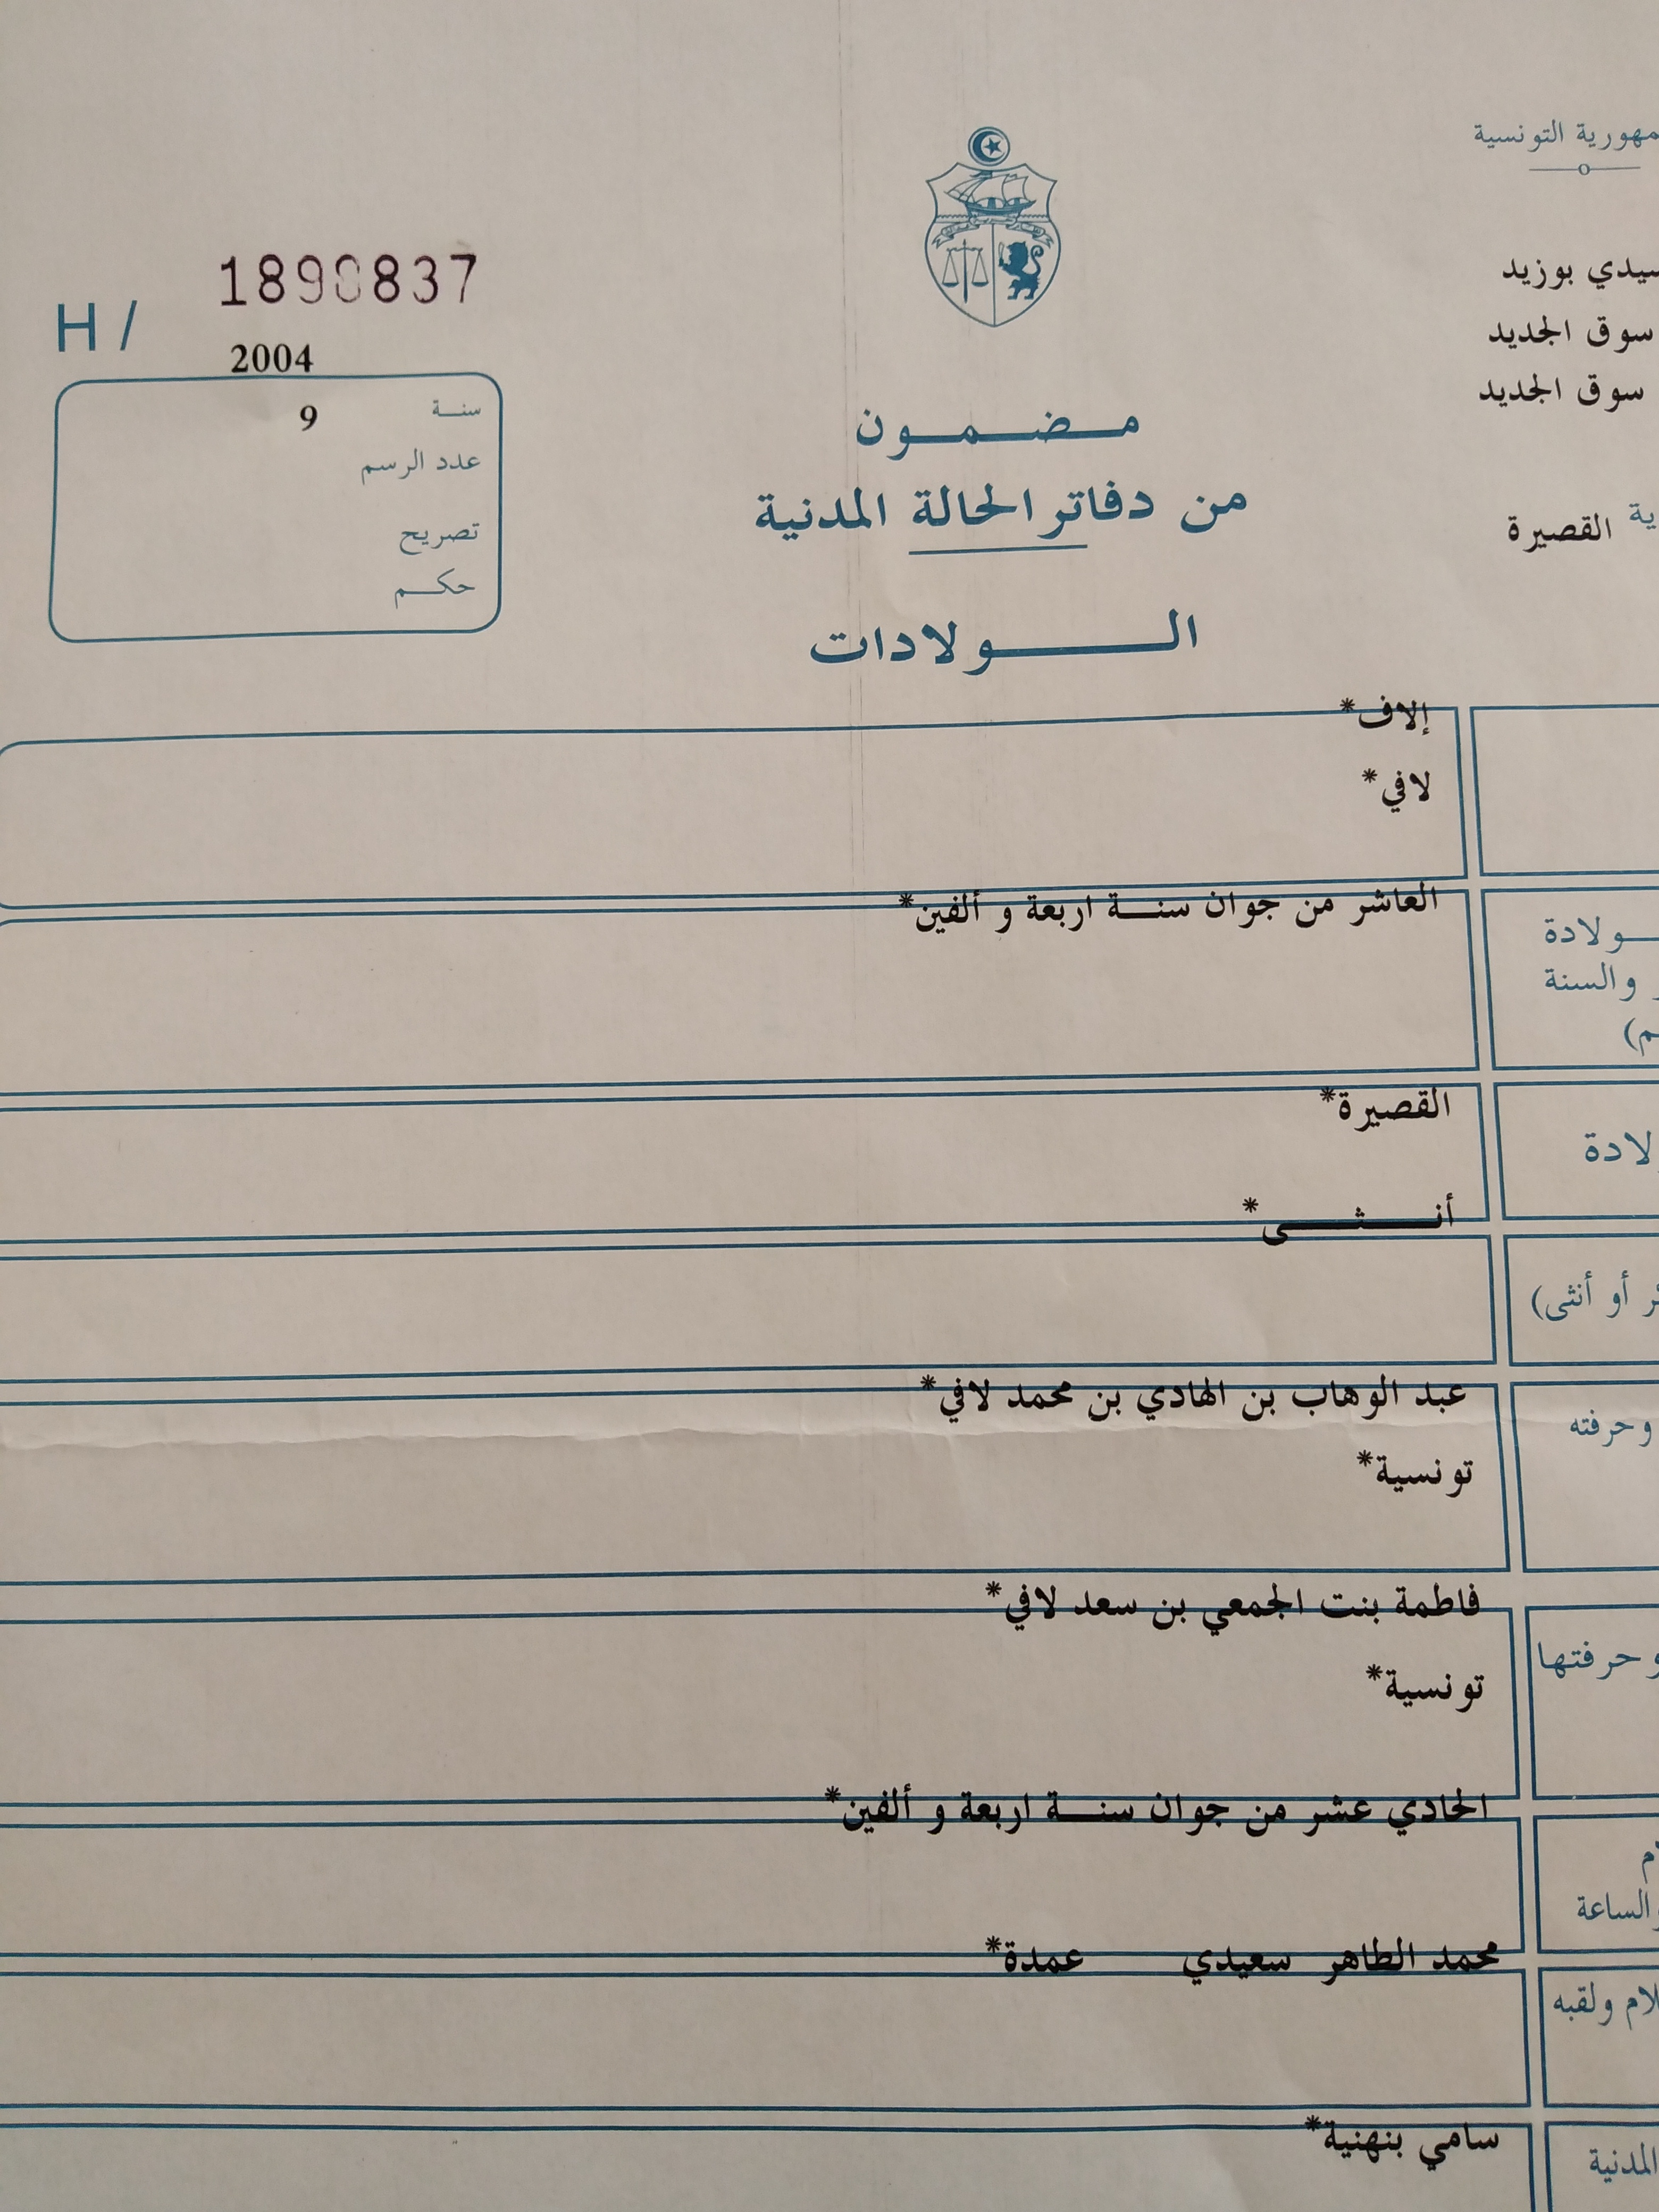 التونسية
سيدي بوزيد
سوق الجديد
سوق الجديد
القصيرة
H / 1890837
2004
سنة 9
عدد الرسم
تصريح
حكم
مضمون
من دفاتر الحالة المدنية
الولادات
إلاف*
لافي*
العاشر من جوان سنة اربعة و ألفين*
والسنة
القصيرة*
أنثى*
أو أنثى)
عبد الوهاب بن الهادي بن محمد لافي*
وحرفته
تونسية*
فاطمة بنت الجمعي بن سعد لافي*
وحرفتها
تونسية*
الحادي عشر من جوان سنة اربعة و ألفين*
والساعة
محمد الطاهر سعيدي عمدة*
ولقبه
سامي بنهنية*
المدنية